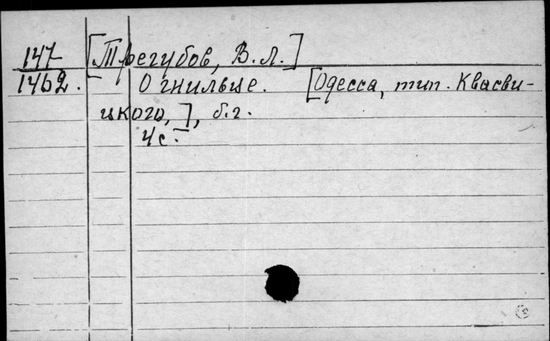 147
1462.
[Трегубов, В.Л.]
О гнильце. [Одесса, тип. Квасви-
цкого,], б.г.
4с.